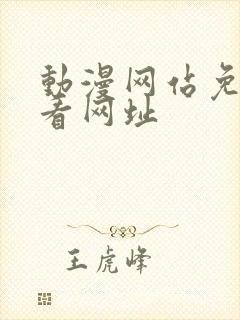 動漫网佔免
看网址
王虎峰